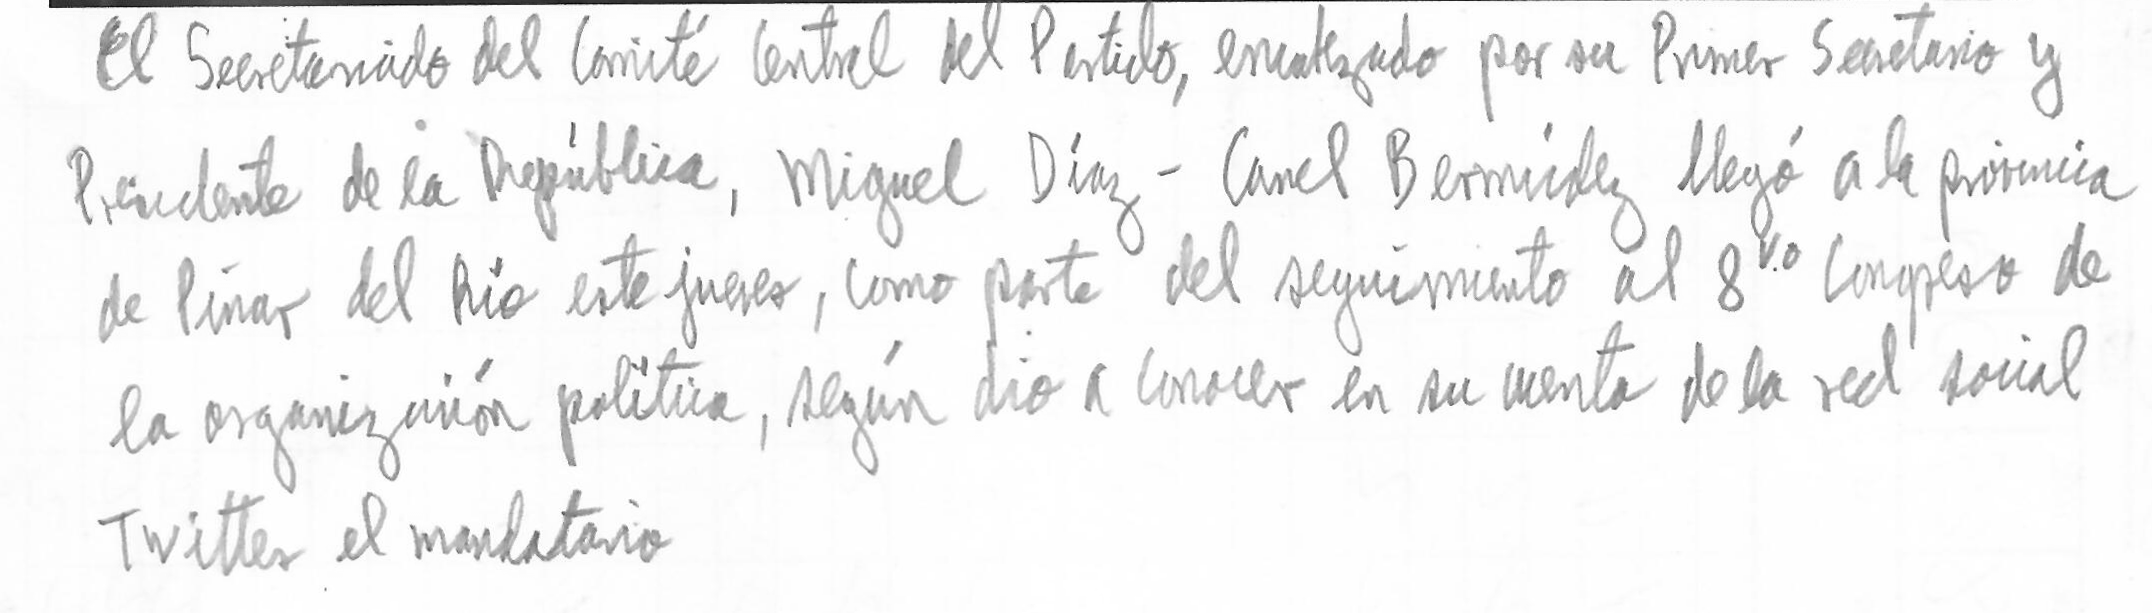 El Secretariado del Comité Central del Partido, encabezado por su Primer Secretario y
Presidente de la República, Miguel Díaz-Canel Bermúdez llegó a la provincia
de Pinar del Río este jueves, como parte del seguimiento al 8v.o Congreso de
la organización política, según dio a conocer en su cuenta de la red social
Twitter el mandatario